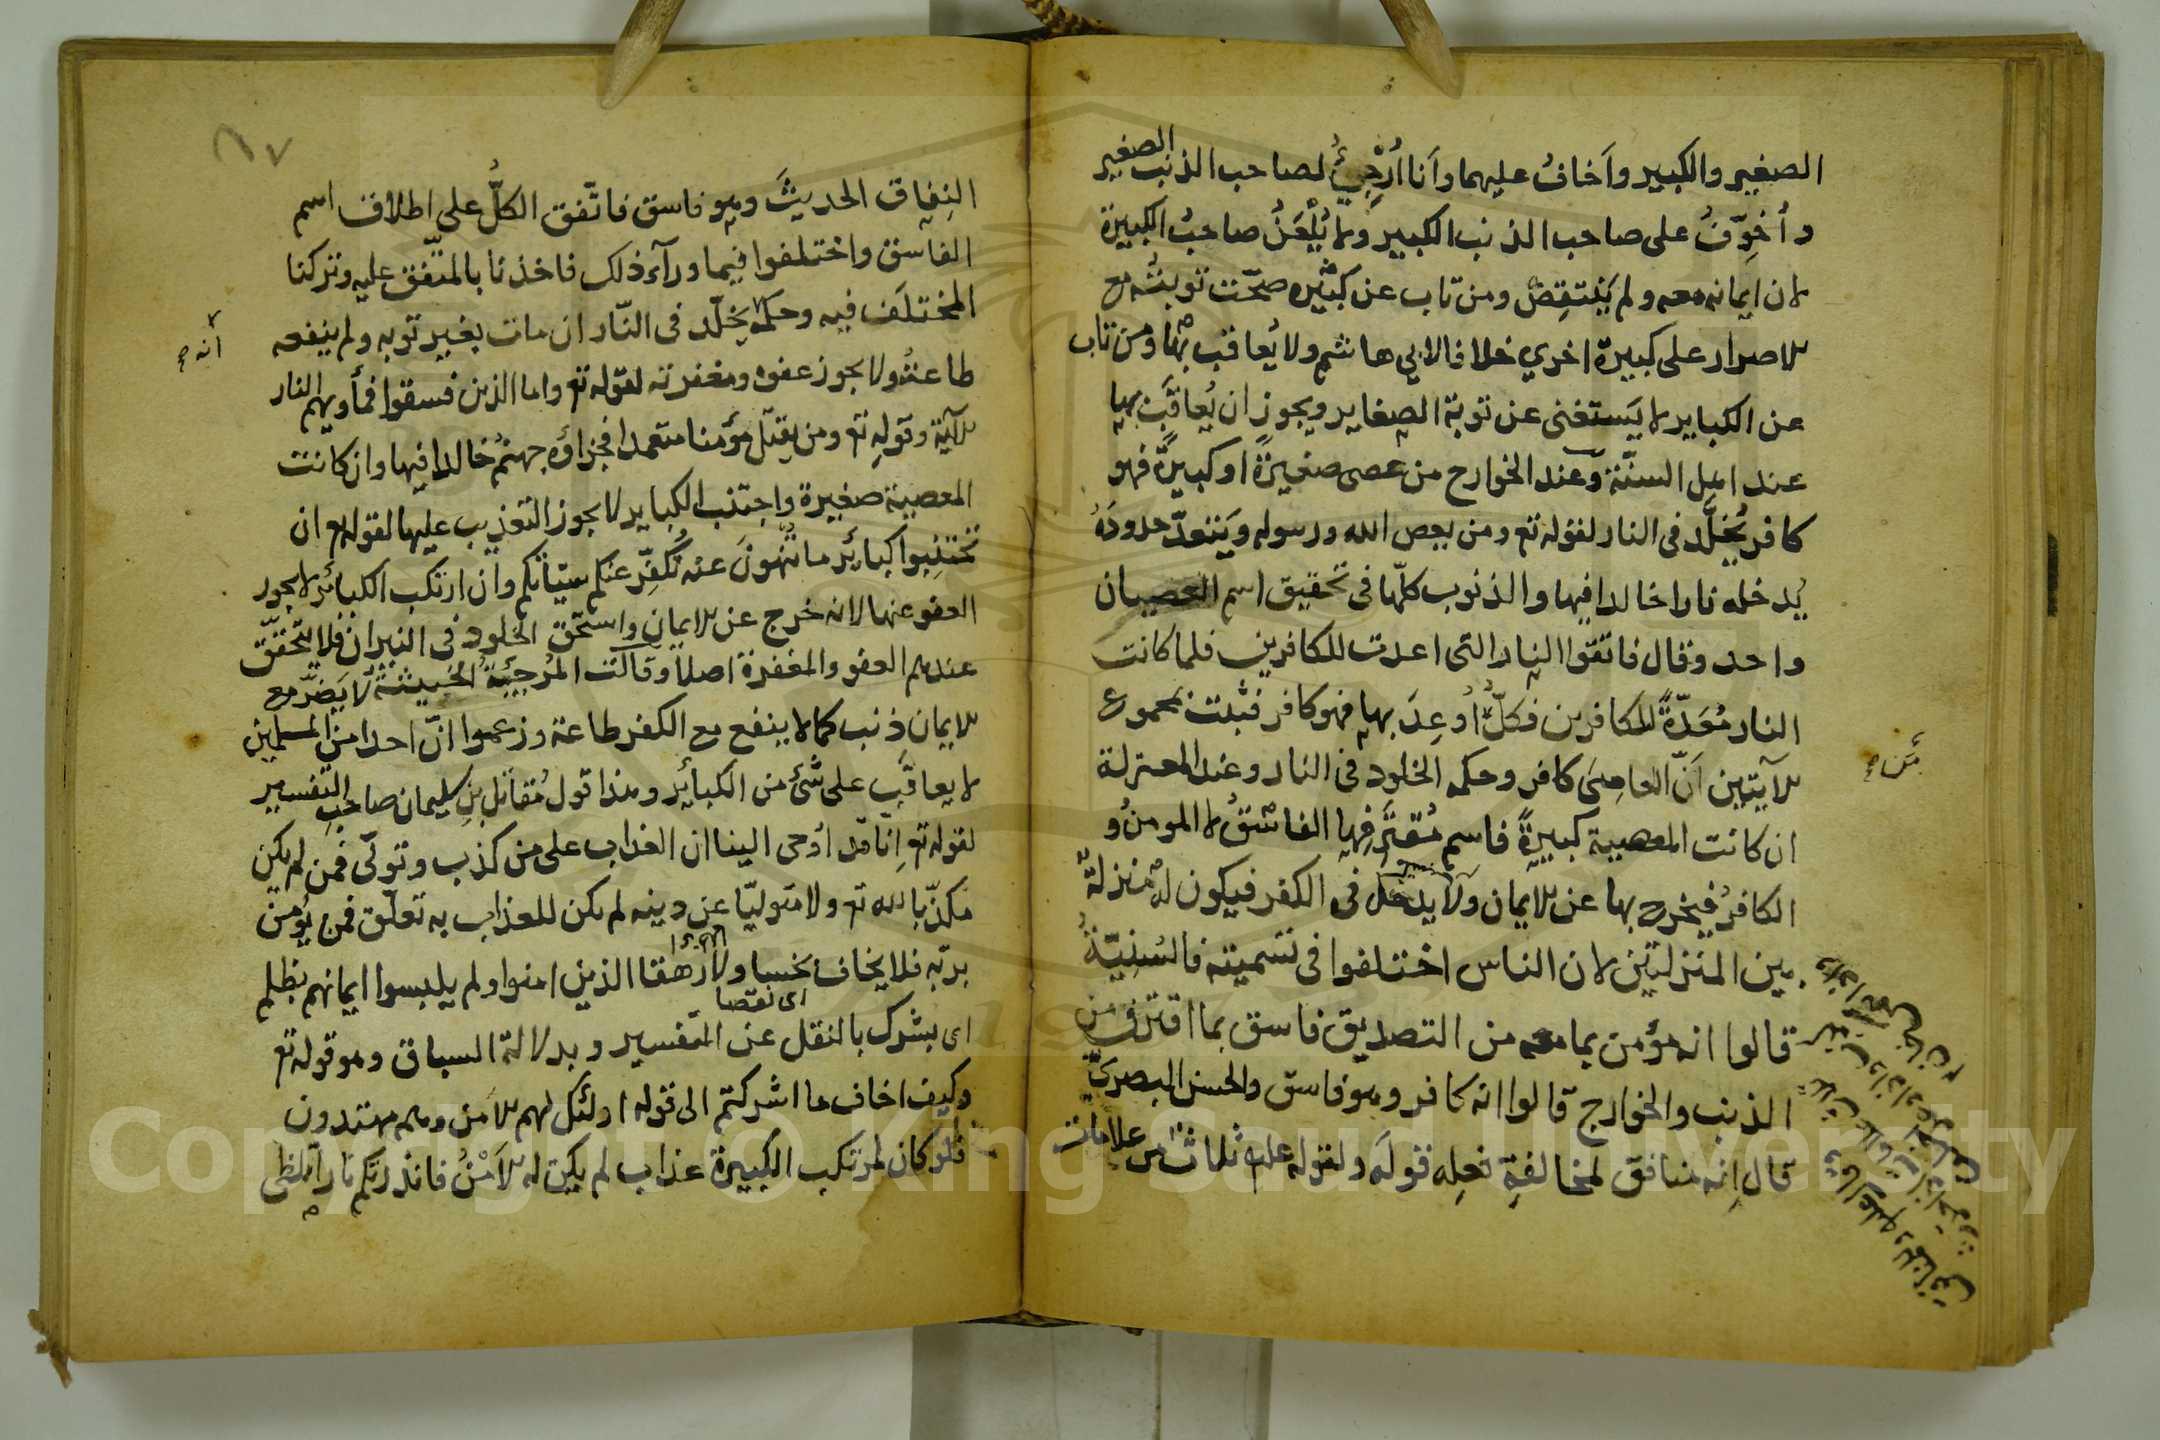 الصغير والكبير واَخافُ عليهما واَنا اُرْجِئُ لصاحب الذنب الصغير
واُخوِّفُ على صاحب الذنب الكبير ولا يُلْعَنُ صاحبُ الكبيرة
لان ايمانه معه ولم يَنتقِضْ ومن تاب عن كبيرة صحّت توبتُه مع
الاصرار على كبيرة اخري خلافا لابى هاشم ولا يُعاقَب بها ومن تاب
عن الكباير لا يَستغنى عن توبة الصغاير ويجوز ان يُعاقَبَ بها
عند اهل السنّة وعند الخوارج من عصى صغيرةً او كبيرةً فهو
كافر يُخلَّد فى النار لقوله تع ومن يعص الله ورسوله ويَتعدّ حدودَهُ
يُدخله نارا خالدا فيها والذنوب كلّها فى تحقيق اسم العصيان
واحد وقال فاتقوا النار التى اعدت للكافرين فلما كانت
النار مُعَدّةً للكافرين فكلُّ اُوعِدَ بها فهو كافر فثبت بمجموع
الآيتين اَنّ العاصِىَ كافر وحكمه الخلود فى النار وعند المعتزلة
ان كانت المعصية كبيرةً فاسم مُقترِفِها الفاسقُ لا المومنُ و
الكافرُ فيخرج بها عن الايمان ولا يدخل فى الكفر فيكون له منزلةٌ
بين المنزلتين لان الناس اختلفوا فى تسميته فالسُنِيّةُ
قالوا انه مؤمن بما معه من التصديق فاسق بما اقترف من
الذنب والخوارج قالوا انه كافر وهو فاسق والحسن البصرىّ
قال اِنه منافق لمخالفةِ فعِله قولَه ولقوله علیه ثلاث من علامات
مَن صح
النِفاق الحديثَ وهو فاسق فاتّفق الكلُّ على اطلاق اسم
الفاسق واختلفوا فيما ورآء ذلك فاخذنا بالمتّفق عليه وتركنا
المختلَف فيه وحكمه يخلّد فى النّار ان مات بغير توبه ولم ينفعه
انه صح
طاعتُه ولا يجوز عفوه ومغفرته لقوله تع واما الذين فسقوا فمأويهم النار
الآية وقولِه تع ومن يقتل مؤمنا متعمدا فجزاؤه جهنمُ خالدا فيها وان كانت
المعصية صغيرة واجتنب الكباير لا يجوز التعذيب عليها لقوله تع ان
تجتنبوا كبائر ما تُنهونَ عنه نُكفِّر عنكم سيّأتكم وان ارتكب الكبائر لا يجوز
العفو عنها لانه خرج عن الايمان واستحقّ الخلود فى النيران فلا يتحقّق
عندهم العفو والمغفرة اصلاً وقالت المُرجئيةُ الخبيثةُ لا يَضرّ مع
الايمان ذنب كما لا ينفع مع الكفر طاعة وزعموا انّ احدا من المسلمين
لا يعاقَب على شئ من الكبائر وهذا قول مُقاتل بنِ سليمان صاحب التفسير
لقوله تع اِنا قد اُوحى الينا ان العذاب على من كذب وتولّى فمن لم يكن
مكذّبا لله تع ولا متوليّا عن دينه لم يكن للعذاب به تعلّق فمن يُومن
بربّه فلا يخاف بخسا ولا رَهقا الذين امنوا ولم يلبسوا ايمانهم بظلم
اى نقصا
اى بشرك بالنقل عن المفسير وبدلالة السباق وهو قوله تع
وكيف اخاف ما اشركتم الى قوله اولئك لهم الامن وهم مهتدون
فلو كان لمرتكب الكبيرة عذاب لم يكن له الاَمْنُ فانذرتكم نارا تلظى
Copyright © King Saud University